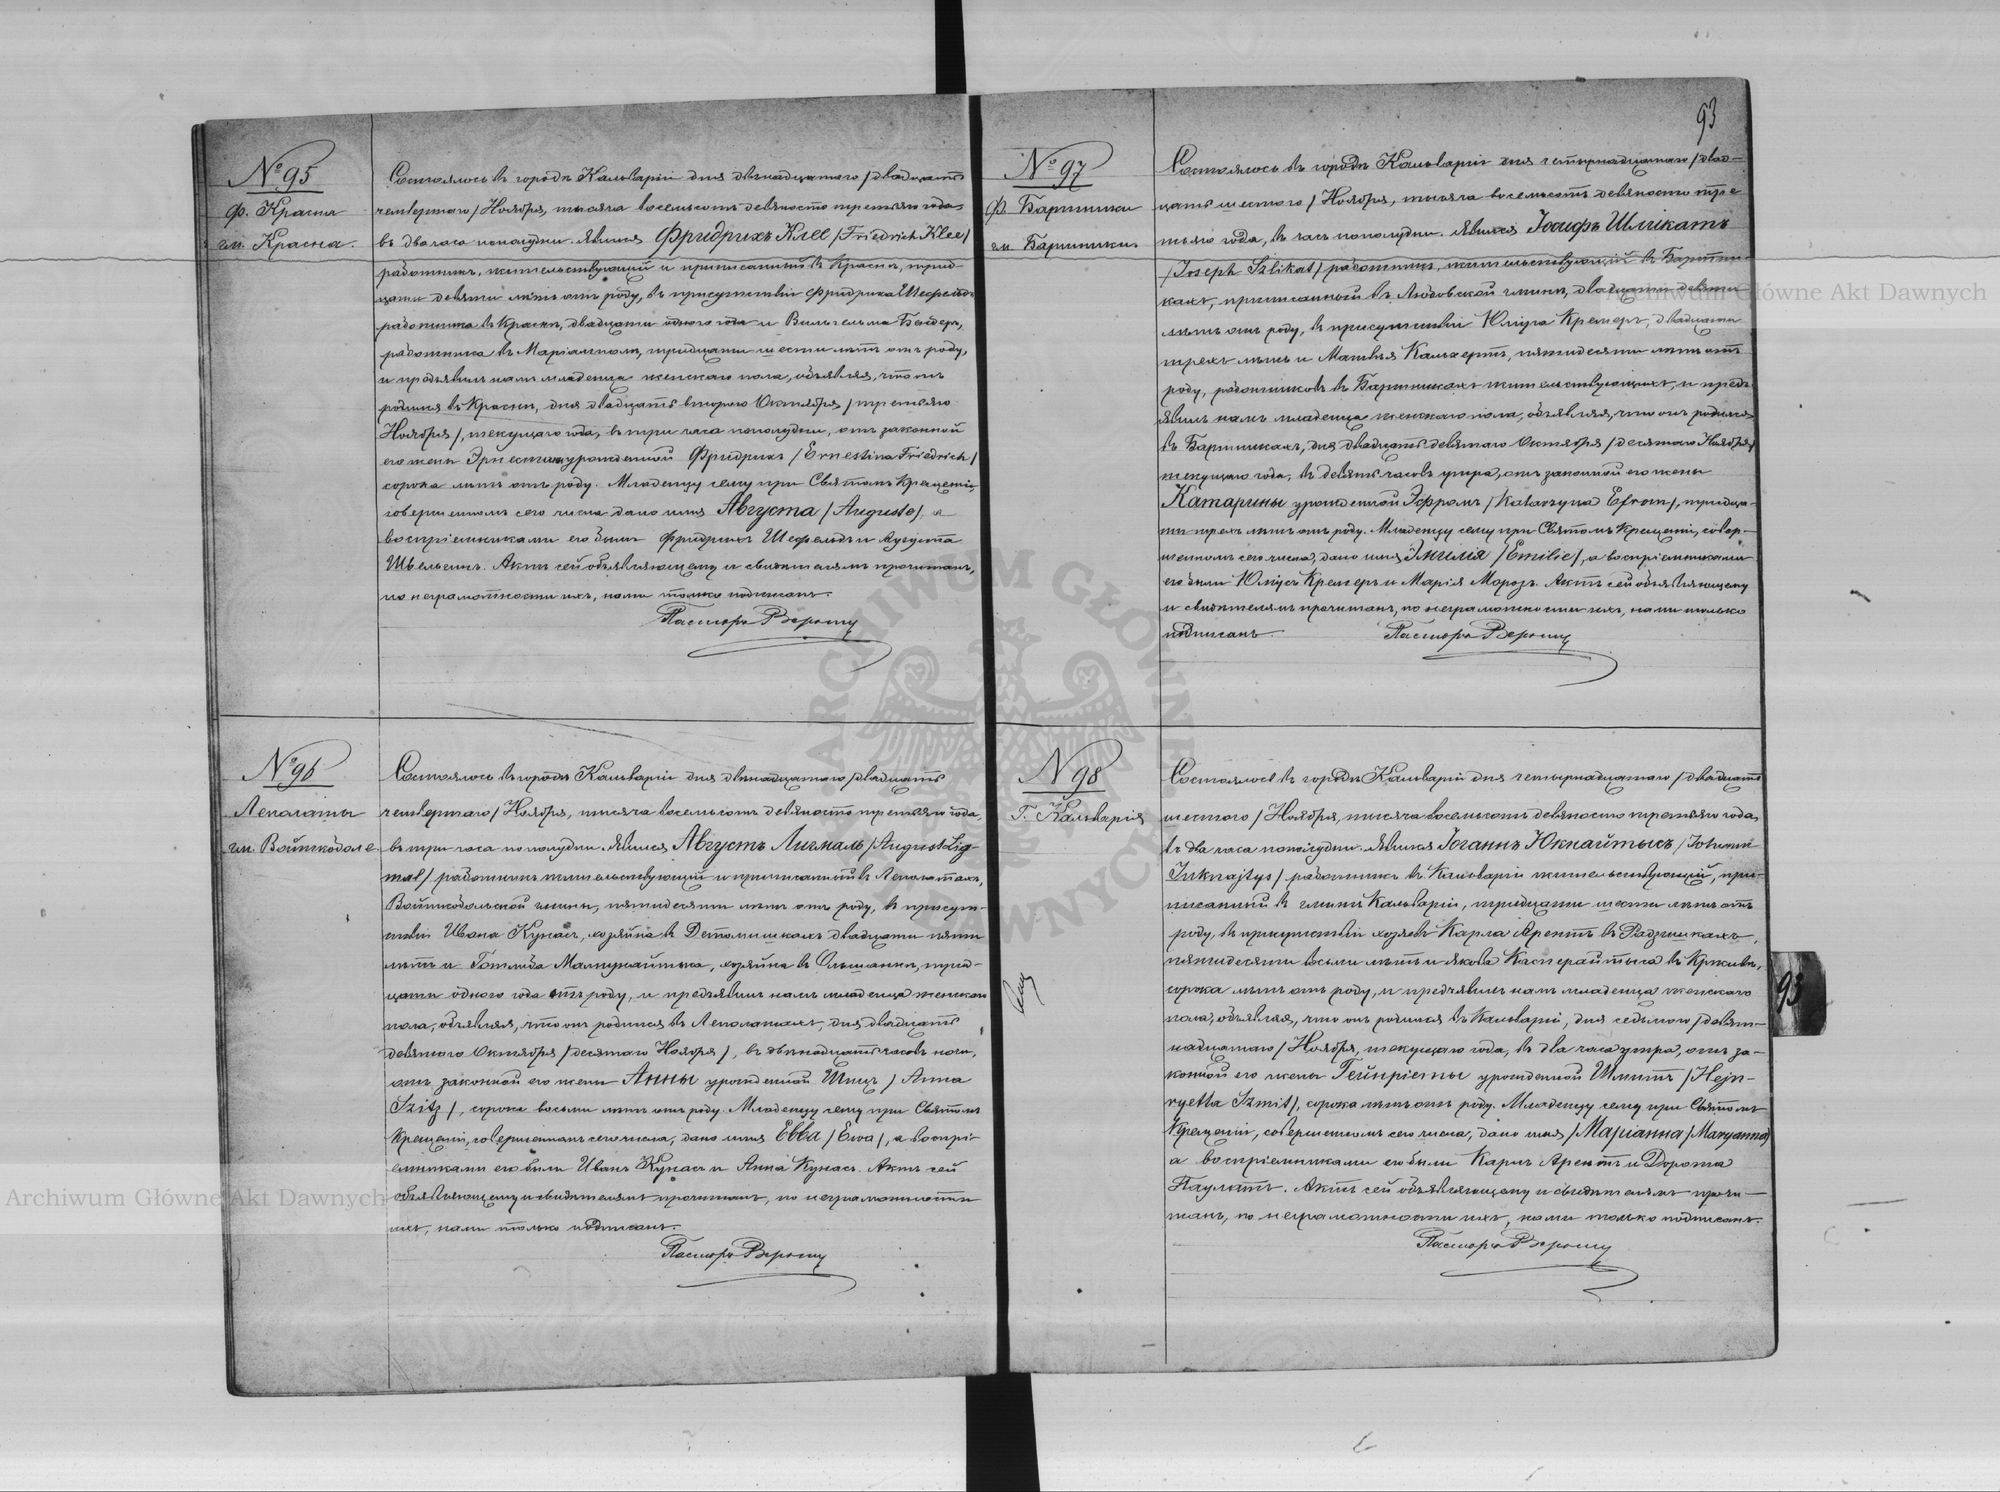 № 95
Ф. Красна
гм. Красна.
Состоялось въ городѣ Кальваріи дня двѣнадцатаго /двадцать
четвертаго/ Ноября, тысяча восемьсотъ девяносто третьяго года,
въ два часа пополудни. Явился Фридрихъ Клее /Friedrich Klee/
работникъ, жительствующій и приписанный въ Краснѣ, трид-
цати девяти лѣтъ отъ роду, въ присутствіи Фридриха Шефельдъ
работника въ Краснѣ, двадцати одного года и Вильгельма Бендеръ,
работника въ Маріамполѣ, тридцати шести лѣтъ отъ роду,
и предъявилъ намъ младенца женскаго пола, объявляя, что онъ
родился въ Краснѣ, дня двадцать втораго Октября /третьяго
Ноября/, текущаго года, въ три часа пополудни, отъ законной
его жены Эрнестины урожденной Фридрихъ /Ernestina Friedrich/
сорока лѣтъ отъ роду. Младенцу сему при Святомъ Крещеніи,
совершенномъ сего числа, дано имя Августа /Auguste/, а
воспріемниками его были Фридрихъ Шефельдъ и Августа
Актъ сей объявляющему и свидѣтелямъ прочитанъ,
по неграмотности ихъ, нами только подписанъ.
Пасторъ
№ 96
Лепалаты
гм. Войткобole
Состоялось въ городѣ Кальваріи дня двѣнадцатаго /двадцать
четвертаго/ Ноября, тысяча восемьсотъ девяносто третьяго года,
въ три часа пополудни. Явился Августъ Лигмаль /August Lig-
mal/ работникъ жительствующій и приписанный въ Лепалатахъ,
Войткобольской гмины, пятидесяти лѣтъ отъ роду, въ присут-
ствіи Ивана Кунасъ, хозяина въ двадцати пяти
лѣтъ и Готлиба хозяина въ Ольшанкѣ, трид-
цати одного года отъ роду, и предъявилъ намъ младенца женскаго
пола, объявляя, что онъ родился въ Лепалатахъ, дня двадцать
девятаго Октября /десятаго Ноября/, въ двѣнадцать часовъ ночи,
отъ законной его жены Анны урожденной Шицъ /Anna
Szitz/, сорока восьми лѣтъ отъ роду. Младенцу сему при Святомъ
Крещеніи, совершенномъ сего числа, дано имя Евва /Ewa/, а воспрі-
емниками его были Иванъ Кунасъ и Анна Кунасъ. Актъ сей
объявляющему и свидѣтелямъ прочитанъ, по неграмотности
ихъ, нами только подписанъ.
Пасторъ
93
№ 97
Ф. Бартники
гм. Бартники.
Состоялось въ городѣ Кальваріи дня четырнадцатаго /двад-
цать шестого/ Ноября, тысяча восемьсотъ девяносто тре-
тьяго года, въ часъ пополудни. Явился Іосифъ Шликатъ
/Joseph Szlikat/ работникъ, жительствующій въ Бартни-
кахъ, приписанный въ Любовской гминѣ, двадцати девяти
лѣтъ отъ роду, въ присутствіи Юліуса Кремеръ, двадцати
трехъ лѣтъ и Матвѣя Кальхертъ, пятидесяти лѣтъ отъ
роду, работниковъ въ Бартникахъ жительствующихъ, и предъ-
явилъ намъ младенца женскаго пола, объявляя, что онъ родился
въ Бартникахъ, дня двадцать девятаго Октября /десятаго Ноября/
текущаго года, въ девять часовъ утра, отъ законной его жены
Катарины урожденной Эфромъ /Katarzyna Efrom/, тридца-
ти трехъ лѣтъ отъ роду. Младенцу сему при Святомъ Крещеніи, совер-
шенномъ сего числа, дано имя Эмилія /Emilie/, а воспріемниками
его были Юліусъ Кремеръ и Марія Морозъ. Актъ сей объявляющему
и свидѣтелямъ прочитанъ, по неграмотности ихъ, нами только
подписанъ.
Пасторъ
№ 98
Г. Кальварія
Состоялось въ городѣ Кальваріи дня четырнадцатаго /двадцать
шестого/ Ноября, тысяча восемьсотъ девяносто третьяго года,
въ два часа пополудни. Явился Іоганнъ Юкнайтысъ /Johann
Juknajtys/ работникъ въ Кальваріи жительствующій, при-
писанный въ гминѣ Кальваріи, тридцати шести лѣтъ отъ
роду, въ присутствіи хозяевъ Карла Арентъ въ Радзишкахъ,
пятидесяти восьми лѣтъ и Якова Касперайтыса въ
сорока лѣтъ отъ роду, и предъявилъ намъ младенца женскаго
пола, объявляя, что онъ родился въ Кальваріи, дня седьмого /девят-
надцатаго/ Ноября, текущаго года, въ два часа утра, отъ за-
конной его жены Гейнріеты урожденной Шмитъ /Hejn-
ryetta Szmit/, сорока лѣтъ отъ роду. Младенцу сему при Святомъ
Крещеніи, совершенномъ сего числа, дано имя /Маріанна /Maryanna/
а воспріемниками его были Карлъ Арентъ и Дорота
Паулатъ. Актъ сей объявляющему и свидѣтелямъ прочи-
танъ, по неграмотности ихъ, нами только подписанъ.
Пасторъ
93
Archiwum Główne Akt Dawnych
Archiwum Główne Akt Dawnych
ARCHIWUM GŁÓWNE AKT DAWNYCH